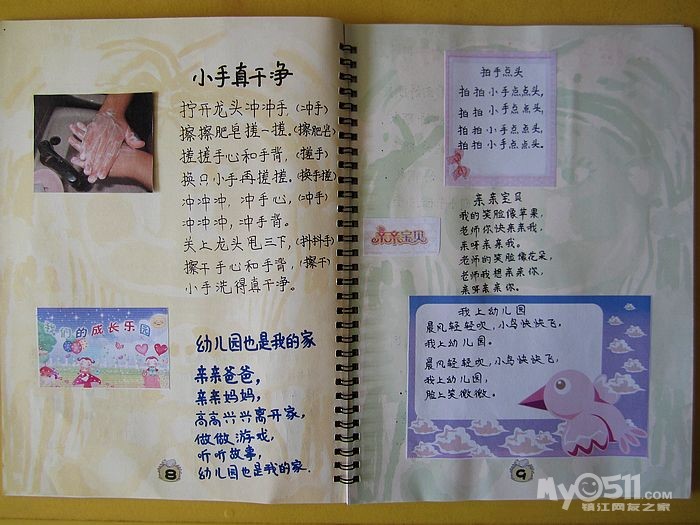 小手真干净
拧开龙头冲冲手,(冲手)
擦擦肥皂搓一搓。(擦肥皂)
搓搓手心和手背,(搓手)
换只小手再搓搓。(换手搓)
冲冲冲,冲手心,(冲手)
冲冲冲,冲手背。
关上龙头甩三下,(抖抖手)
擦干手心和手背,(擦干)
小手洗得真干净。
我们的成长乐园
幼儿园也是我的家
亲亲爸爸,
亲亲妈妈,
高高兴兴离开家,
做做游戏,
听听故事,
幼儿园也是我的家.
8
拍手点头
拍拍小手点点头,
拍拍小手点点头,
拍拍小手点点头,
拍拍小手点点头。
亲亲宝贝
亲亲宝贝
我的笑脸像苹果,
老师你快亲亲我,
亲呀亲亲我。
老师的笑脸像花朵,
老师我想亲亲你,
亲呀亲亲你。
我上幼儿园
晨风轻轻吹,小鸟快快飞,
我上幼儿园。
晨风轻轻吹,小鸟快快飞,
我上幼儿园,
脸上笑微微。
9
My0511.com
镇江网友之家